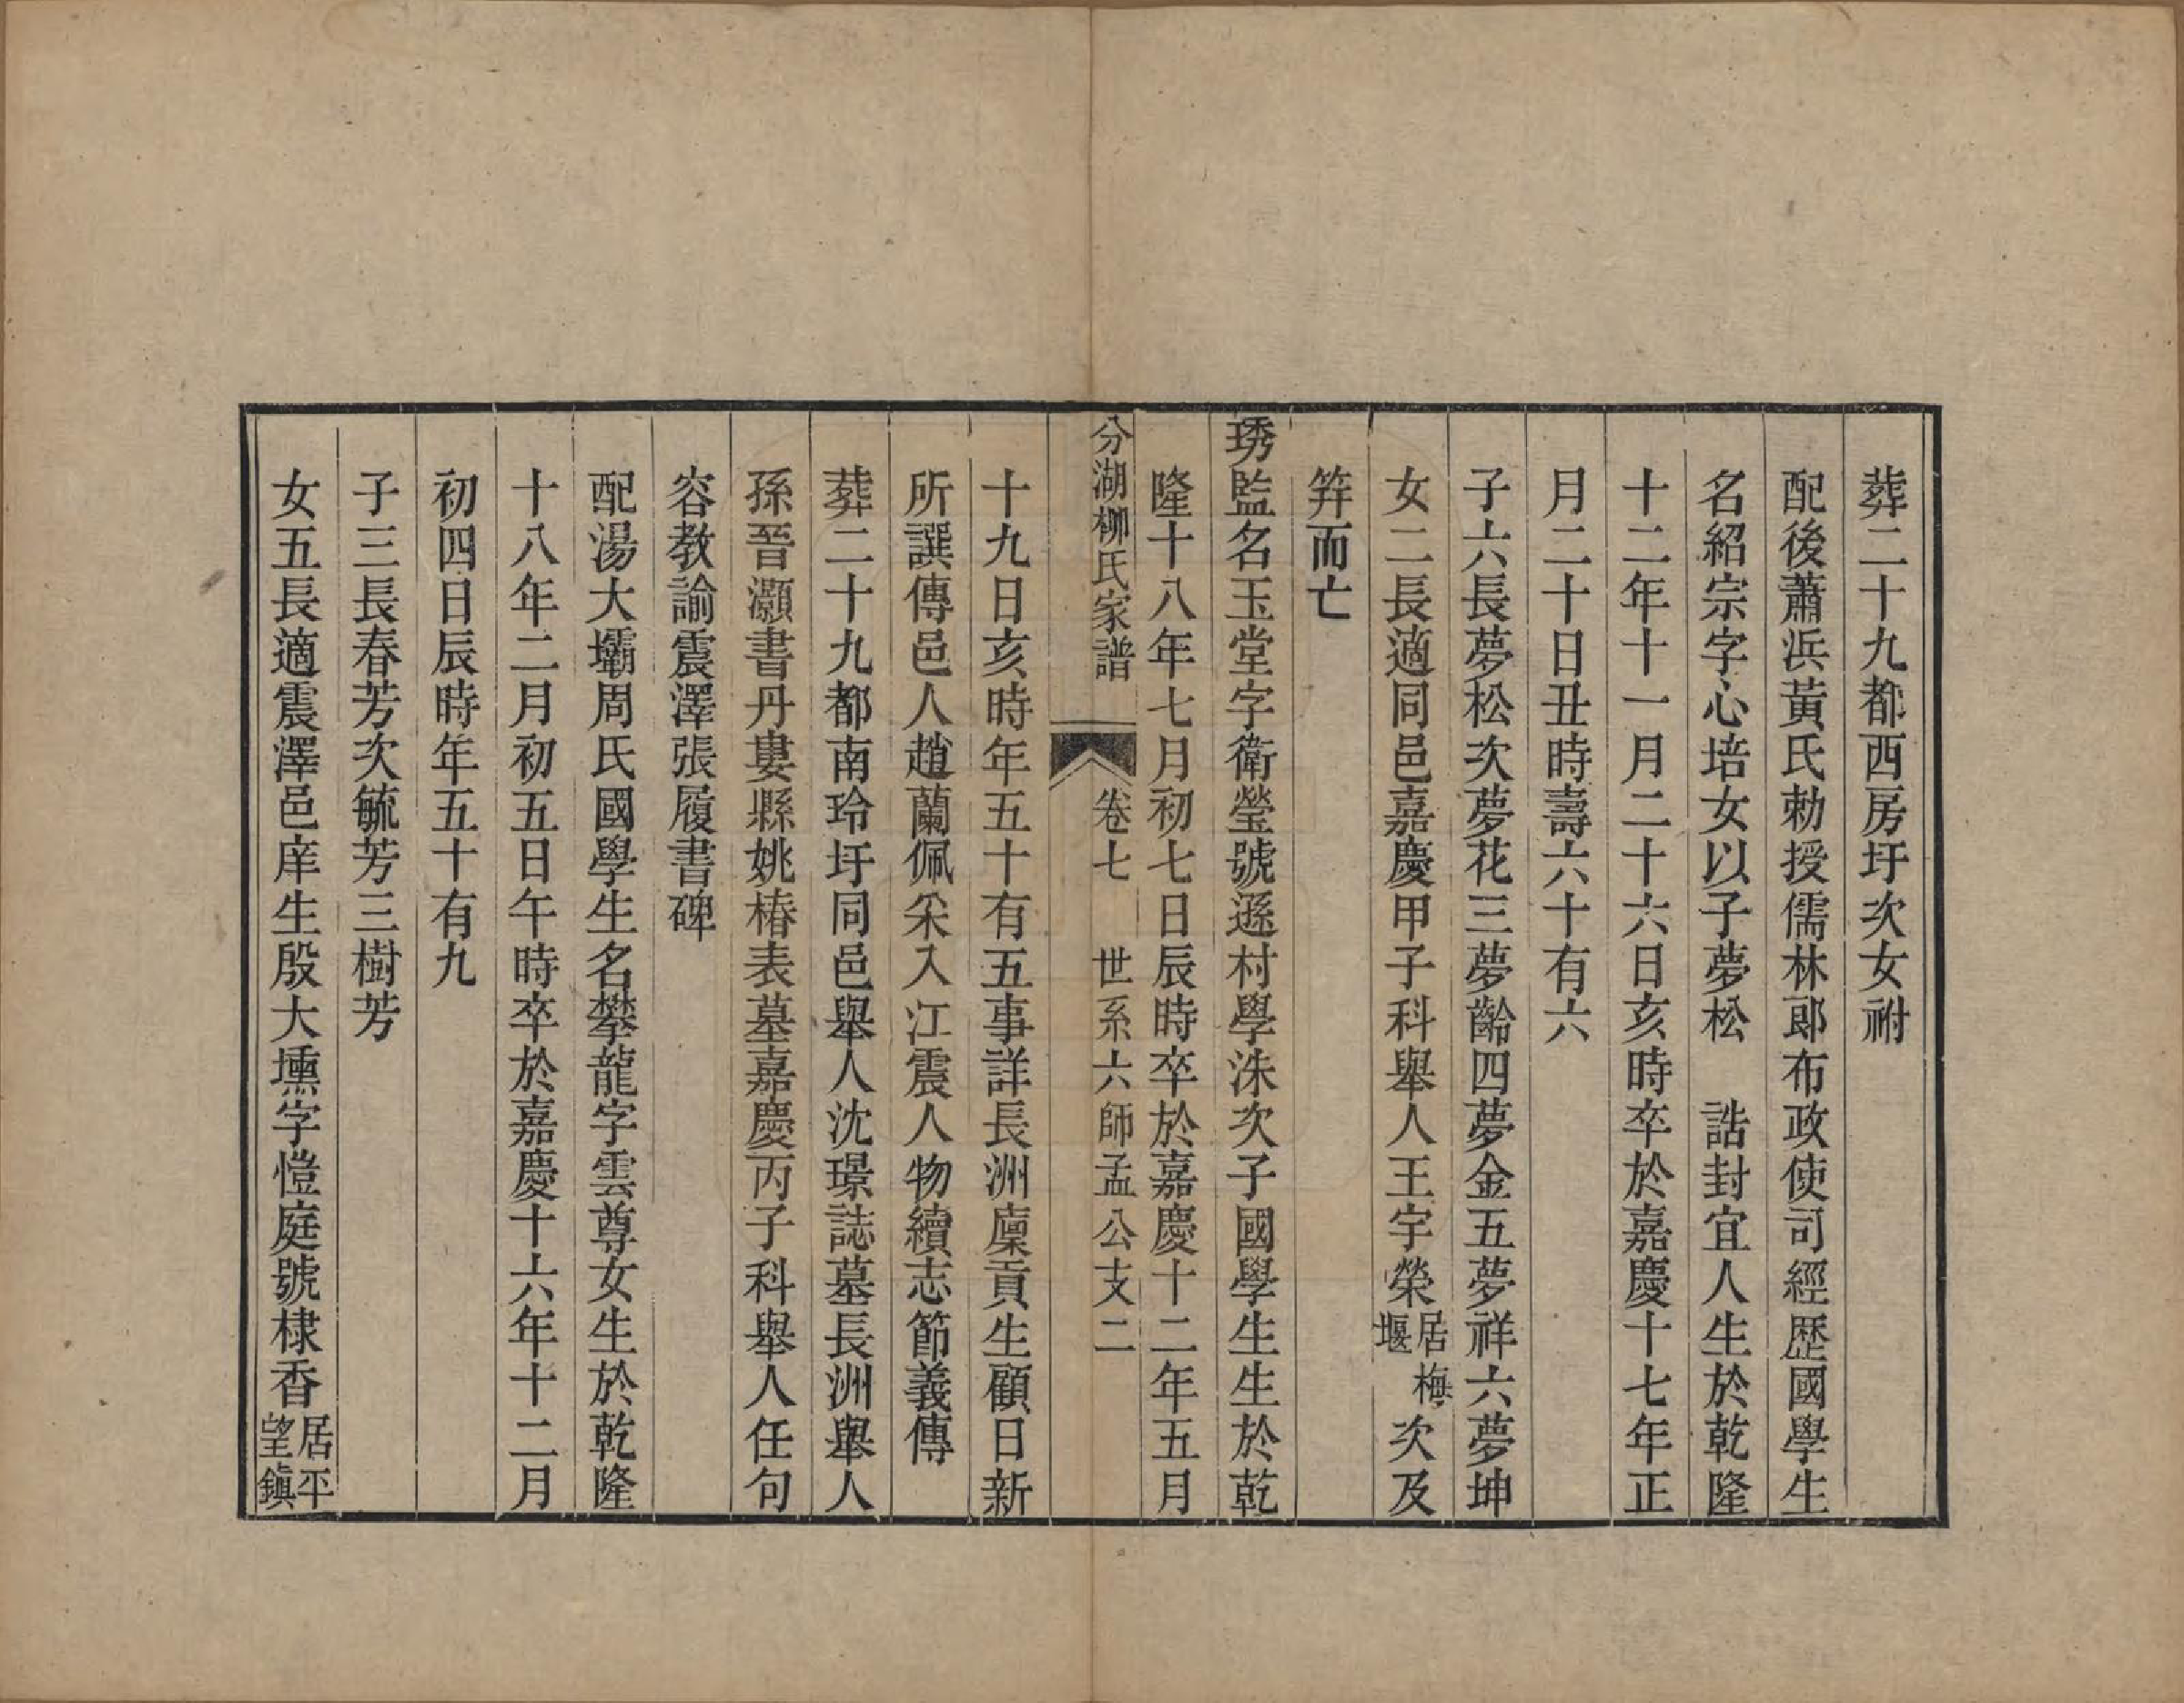 葬二十九都西房圩次女祔
配後蕭浜黃氏勅授儒林郎布政使司經歷國學生
名紹宗字心培女以子夢松　誥封宜人生於乾隆
十二年十一月二十六日亥時卒於嘉慶十七年正
月二十日丑時壽六十有六
子六長夢松次夢花三夢齡四夢金五夢祥六夢坤
女二長適同邑嘉慶甲子科舉人王宇榮居梅堰次及
笄而亡
琇監名玉堂字衛瑩號遜村學洙次子國學生生於乾
隆十八年七月初七日辰時卒於嘉慶十二年五月
分湖柳氏家譜　卷七　世系六師孟公支二
十九日亥時年五十有五事詳長洲廩貢生顧日新
所譔傳邑人趙蘭佩采入江震人物續志節義傳
葬二十九都南玲圩同邑舉人沈璟誌墓長洲舉人
孫晉灝書丹婁縣姚椿表墓嘉慶丙子科舉人任句
容教諭震澤張履書碑
配湯大壩周氏國學生名攀龍字雲尊女生於乾隆
十八年二月初五日午時卒於嘉慶十六年十二月
初四日辰時年五十有九
子三長春芳次毓芳三樹芳
女五長適震澤邑庠生殷大壎字愷庭號棣香居平望鎮